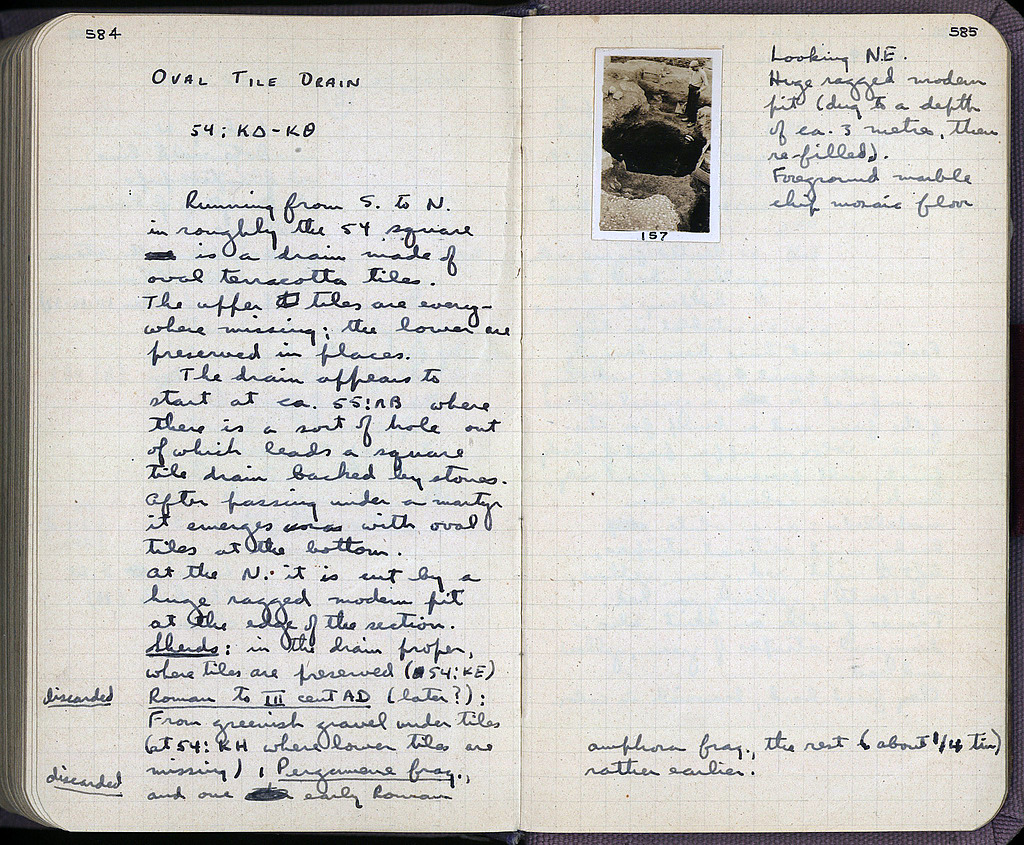 584
OVAL TILE DRAIN
54; ΚΔ-ΚΘ
Running from S. to N.
in roughly the 54 square
is a drain made of
oval terracotta tiles.
The upper tiles are every-
where missing; the lower are
preserved in places.
The drain appears to
start at ca. 55:ΛΒ where
there is a sort of hole out
of which leads a square
tile drain backed by stones.
After passing under a martyr
it emerges with oval
tiles at the bottom.
At the N. it is cut by a
huge ragged modern pit
at the edge of the section.
Sherds: in the drain proper,
where tiles are preserved (54: ΚΕ)
discarded Roman to III cent AD (later?);
From greenish gravel under tiles
(at 54: ΚΗ where lower tiles are
discarded missing), Pergamene frag.,
and one early Roman
585
Looking N.E.
Huge ragged modern
pit (dug to a depth
of ca. 3 metres, then
re-filled).
Foreground marble
chip mosaic floor
157
amphora frag., the rest (about 1/4 tin)
rather earlier.